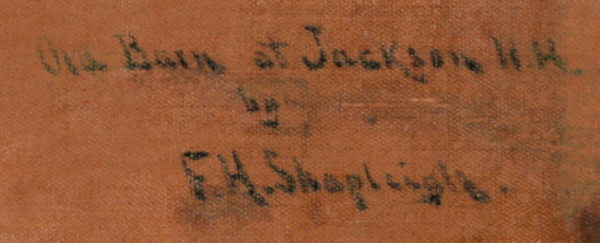 Old Barn at Jackson N.H.
by
F.H. Shapleigh.